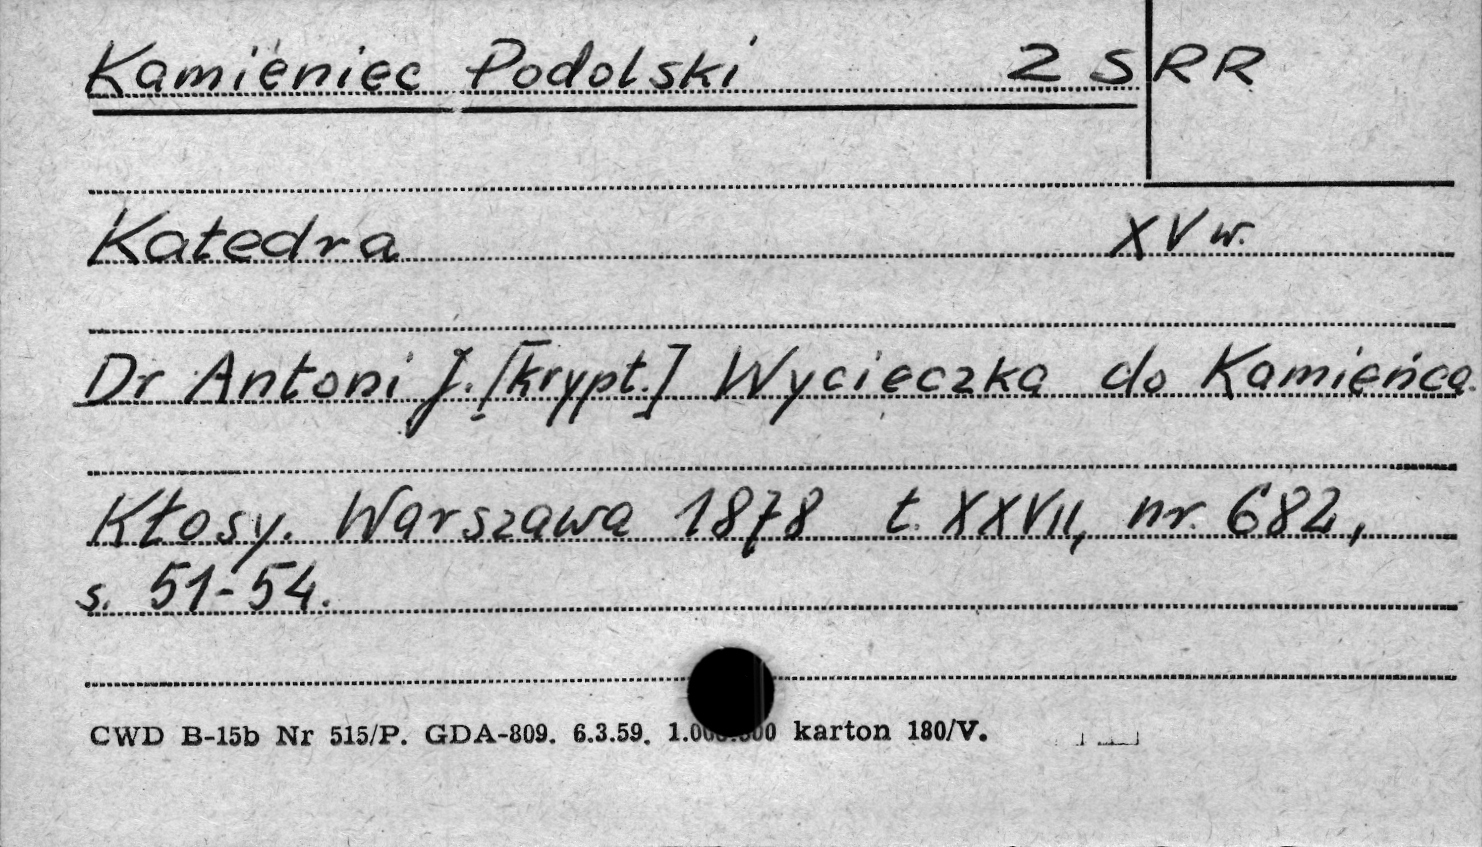 Kamieniec Podolski ZSRR
Katedra XV w.
Dr Antoni J. [krypt.] Wycieczka do Kamieńca
Kłosy. Warszawa 1878 t. XXVII, nr. 682,
s. 51-54.
CWD B-15b Nr 515/P. GDA-809. 6.3.59. karton 180/V.